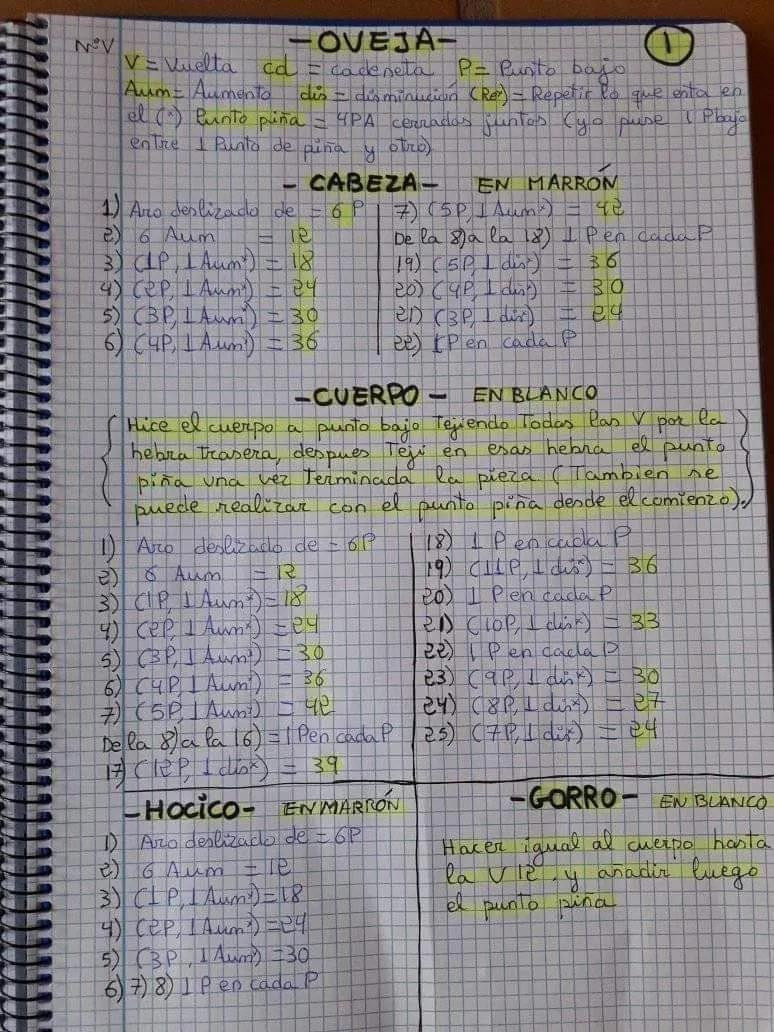 NºV
-OVEJA-
1
V = Vuelta cd = cadeneta P = Punto bajo
Aum = Aumento dis = disminución (Re*) = Repetir lo que esta en
el (*) Punto piña = 4PA cerradas juntos (yo puse 1 Pbajo
entre 1 Punto de piña y otro)
- CABEZA - EN MARRÓN
1) Aro deslizado de = 6 P
2) 6 Aum = 12
3) (1P, 1 Aum*) = 18
4) (2P, 1 Aum*) = 24
5) (3P, 1 Aum*) = 30
6) (4P, 1 Aum*) = 36
7) (5P, 1 Aum*) = 42
De la 8) a la 18) 1 P en cada P
19) (5P, 1 dis*) = 36
20) (4P, 1 dis*) = 30
21) (3P, 1 dis*) = 24
22) 1P en cada P
- CUERPO - EN BLANCO
Hice el cuerpo a punto bajo Tejiendo Todas las V por la
hebra Trasera, despues Teji en esas hebra el punto
piña una vez Terminada la pieza (Tambien se
puede realizar con el punto piña desde el comienzo).
1) Aro deslizado de = 6P
2) 6 Aum = 12
3) (1P, 1 Aum*) = 18
4) (2P, 1 Aum*) = 24
5) (3P, 1 Aum*) = 30
6) (4P, 1 Aum*) = 36
7) (5P, 1 Aum*) = 42
De la 8) a la 16) = 1 P en cada P
17) (12P, 1 dis*) = 39
18) 1 P en cada P
19) (11P, 1 dis*) = 36
20) 1 P en cada P
21) (10P, 1 dis*) = 33
22) 1 P en cada P
23) (9P, 1 dis*) = 30
24) (8P, 1 dis*) = 27
25) (7P, 1 dis*) = 24
- HOCICO - EN MARRÓN
1) Aro deslizado de = 6P
2) 6 Aum = 12
3) (1P, 1 Aum*) = 18
4) (2P, 1 Aum*) = 24
5) (3P, 1 Aum*) = 30
6) 7) 8) 1 P en cada P
- GORRO - EN BLANCO
Hacer igual al cuerpo hasta
la V 12, y añadir luego
el punto piña